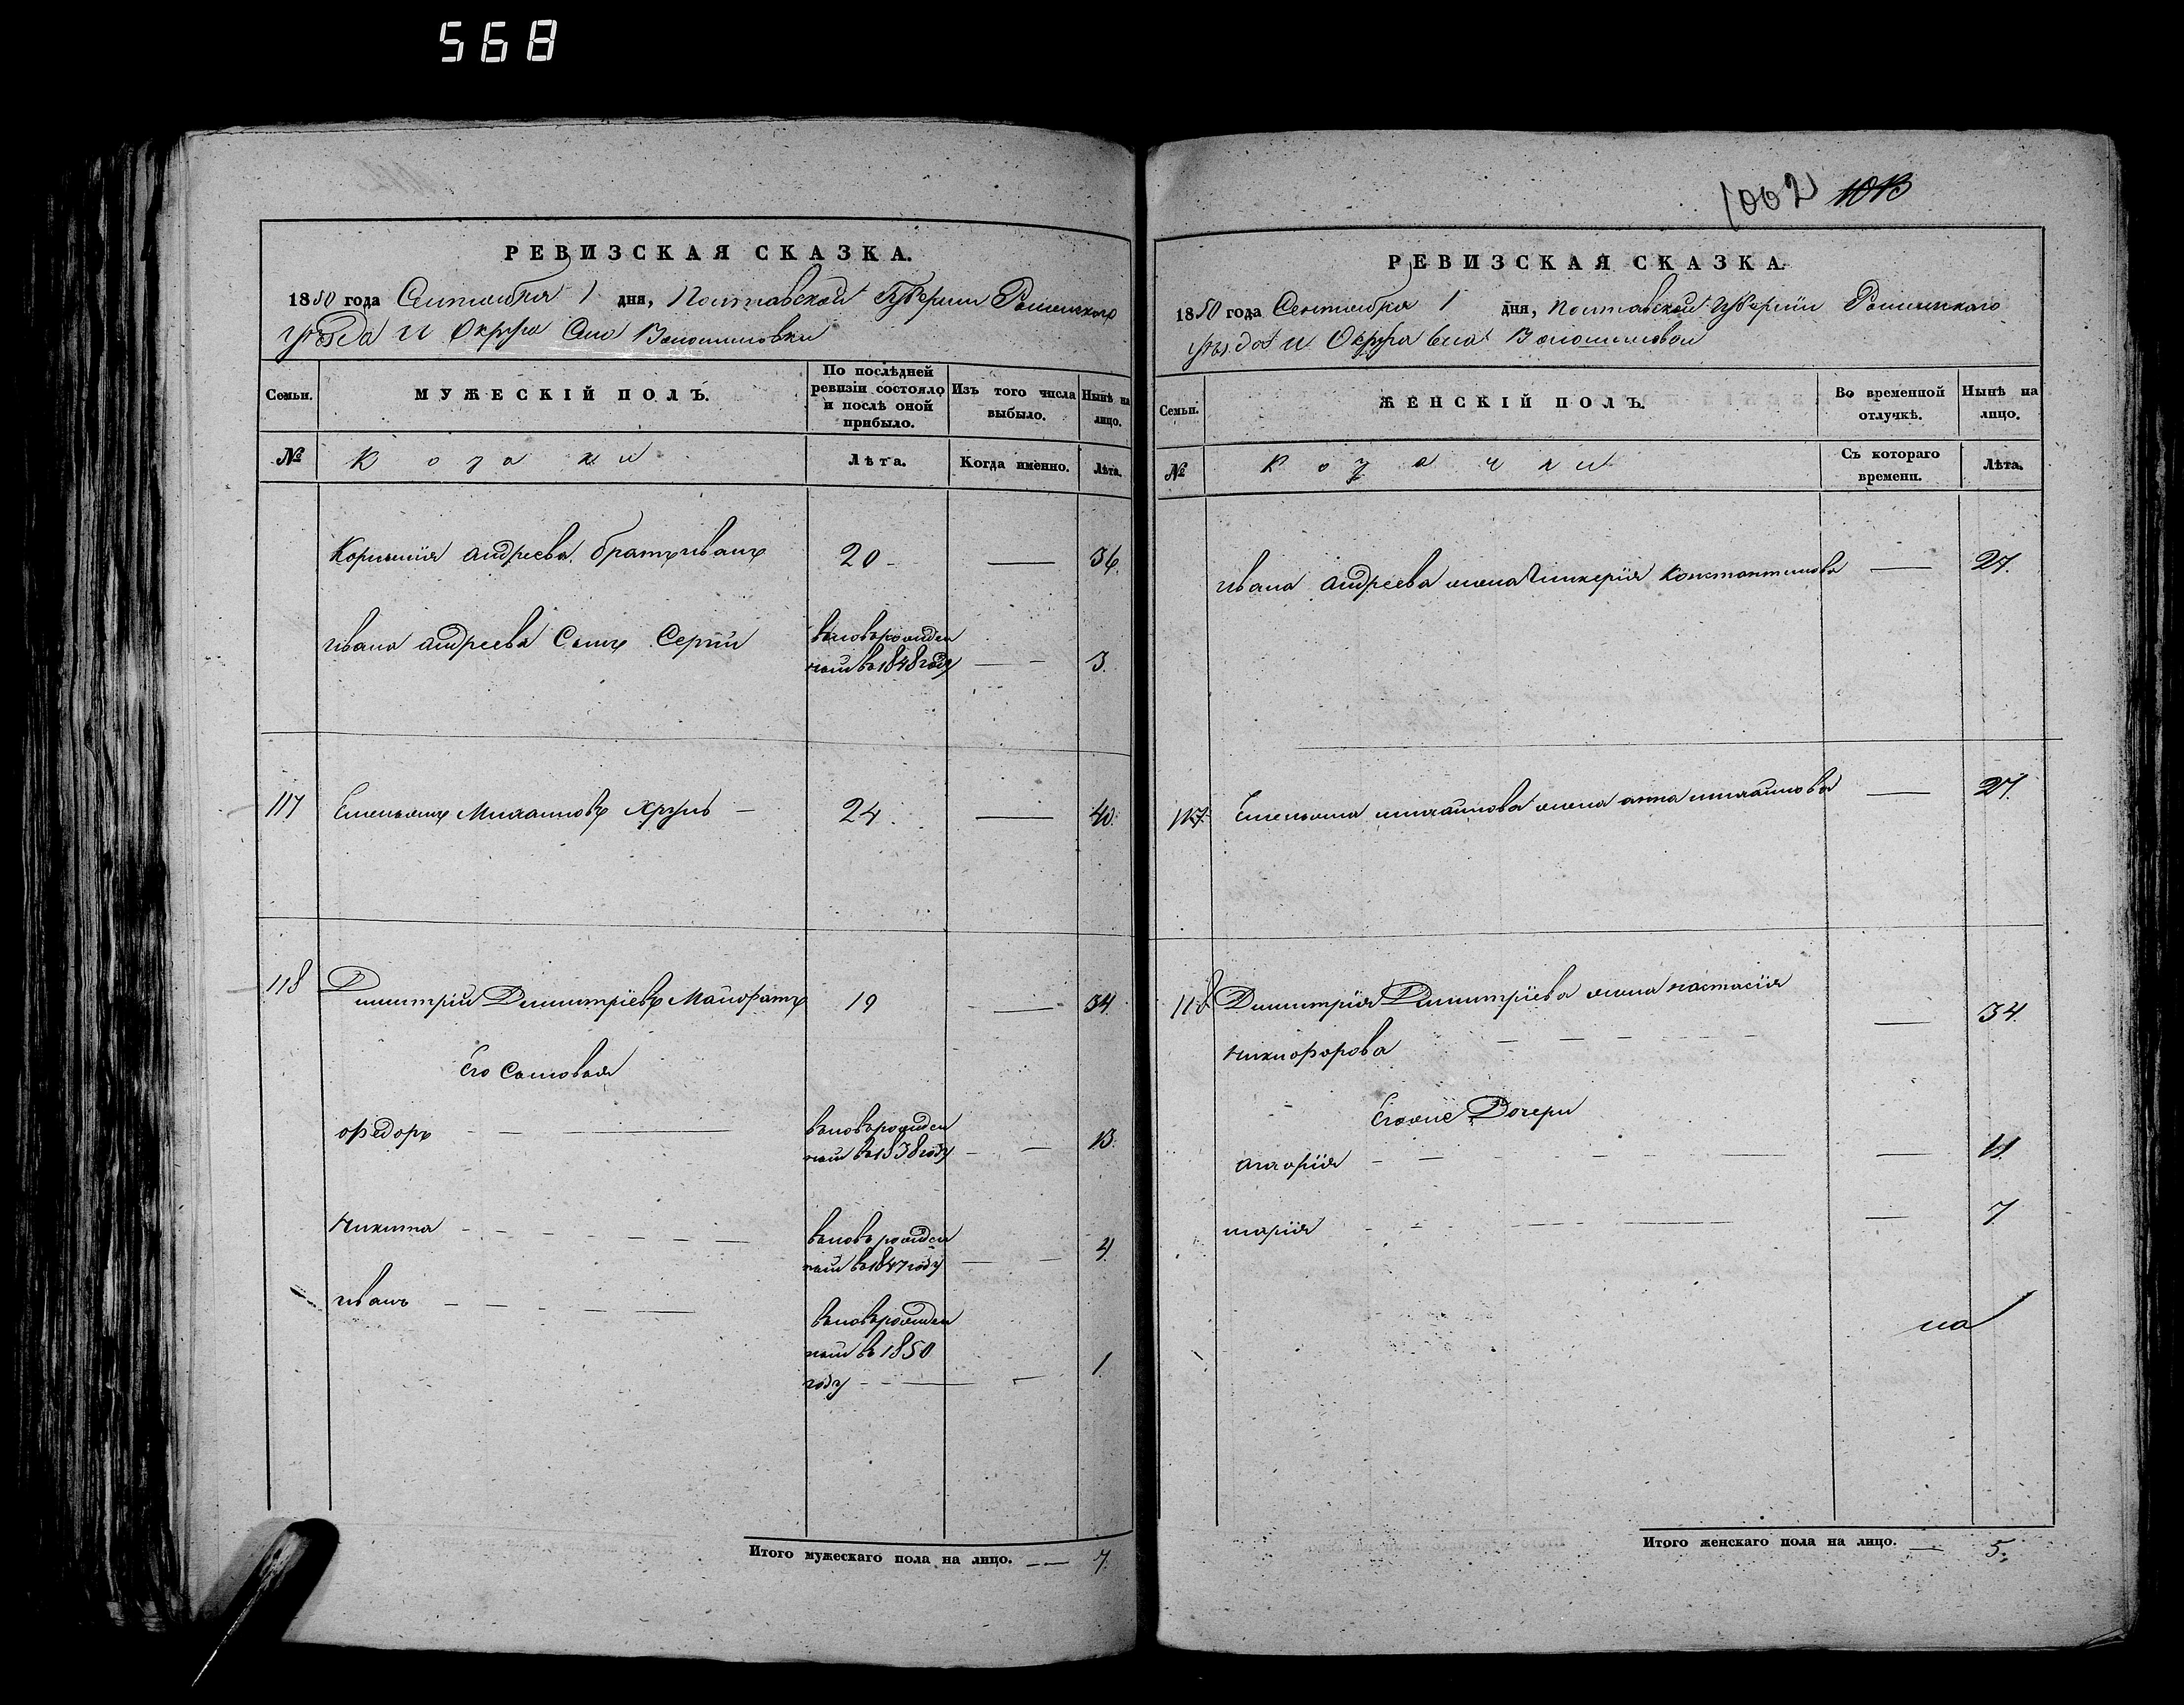 568
РЕВИЗСКАЯ СКАЗКА.
1850 года Сентября 1 дня, Полтавской Губернии Роменского
уѣзда и Округа Села Волошиновки
Семьи.
МУЖЕСКІЙ ПОЛЪ.
По послѣдней ревизіи состояло и послѣ оной прибыло.
Изъ того числа выбыло.
Нынѣ на лицо.
№
Козаки
Лѣта.
Когда именно.
Лѣта.
Корнилія андреева братъ иванъ 20 36.
ивана андреева Сынъ Сергій вновьрожден
ный в 1848 году 3.
117 Емельянъ Михайловъ Хруль 24 40.
118 Димитрій Димитріевъ Майоратъ 19 34.
Его Сыновья
Федоръ вновьрожден
ный в 1838 году 13.
Никита вновьрожден
ный в 1847 году 4.
иванъ вновьрожден
ный в 1850
году 1
Итого мужескаго пола на лицо. 7.
1002 1013
РЕВИЗСКАЯ СКАЗКА.
1850 года Сентября 1 дня, Полтавской Губерніи Роменского
уѣзда и Округа Села Волошиновки
Семьи.
ЖЕНСКІЙ ПОЛЪ.
Во временной отлучкѣ.
Нынѣ на лицо.
№
Козачки
Съ котораго времени.
Лѣта.
ивана андреева жена Гликерія Константинова 27.
117 Емельяна михайлова жена анна михайлова 27.
118 Димитрія Димитріева жена настасія
никифорова 34.
Егожие Дочери
11.
марія 7
на
Итого женскаго пола на лицо. 5.